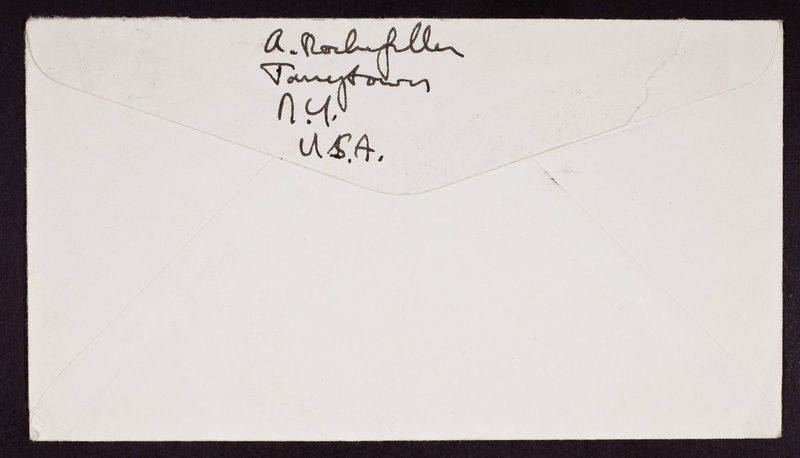 A. Rockefeller
Tarrytown
N.Y.
U.S.A.